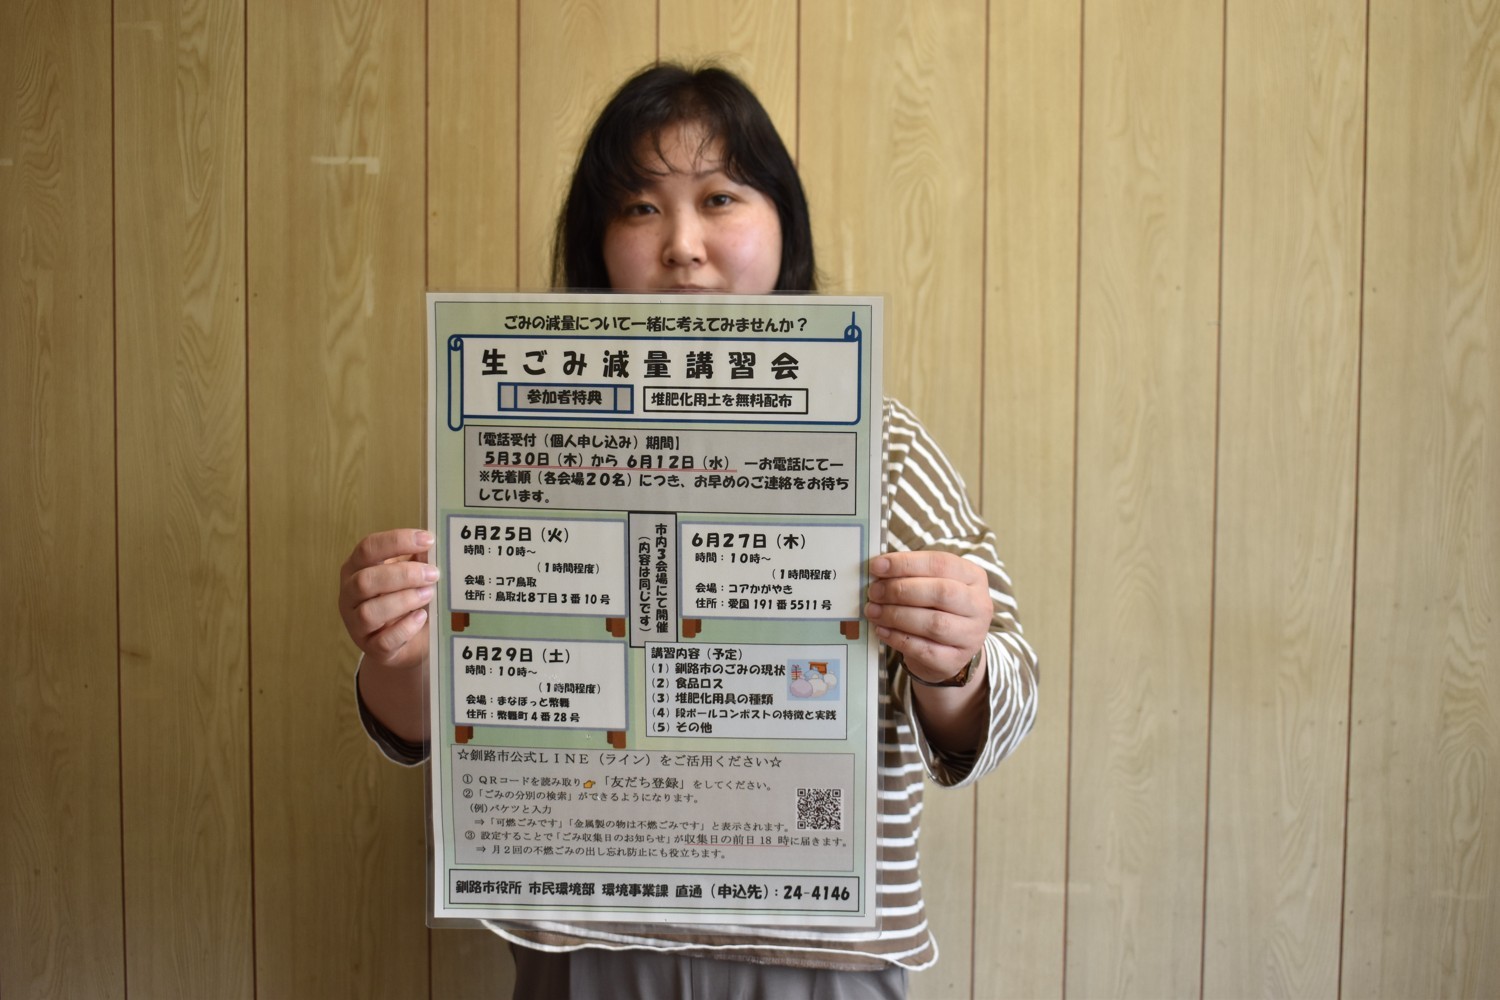 ごみの減量について一緒に考えてみませんか？
生ごみ減量講習会
参加者特典 堆肥化用土を無料配布
【電話受付（個人申し込み）期間】
5月30日（木）から 6月12日（水） ―お電話にて―
※先着順（各会場20名）につき、お早めのご連絡をお待ち
しています。
6月25日（火）
時間：10時～
（1時間程度）
会場：コア鳥取
住所：鳥取北8丁目3番10号
市内3会場にて開催
（内容は同じです）
6月27日（木）
時間：10時～
（1時間程度）
会場：コアかがやき
住所：愛国191番5511号
6月29日（土）
時間：10時～
（1時間程度）
会場：まなぼっと幣舞
住所：幣舞町4番28号
講習内容（予定）
（1）釧路市のごみの現状
（2）食品ロス
（3）堆肥化用具の種類
（4）段ボールコンポストの特徴と実践
（5）その他
☆釧路市公式ＬＩＮＥ（ライン）をご活用ください☆
① QRコードを読み取り👉「友だち登録」をしてください。
②「ごみの分別の検索」ができるようになります。
(例)バケツと入力
⇒「可燃ごみです」「金属製の物は不燃ごみです」と表示されます。
③ 設定することで「ごみ収集日のお知らせ」が収集日の前日 18 時に届きます。
⇒ 月2回の不燃ごみの出し忘れ防止にも役立ちます。
釧路市役所 市民環境部 環境事業課 直通（申込先）：24-4146